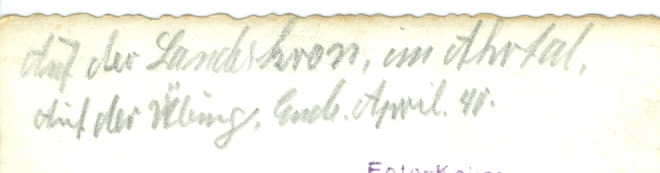 Auf der Landskron, im Ahrtal,
Auf der Übung, Ende. April. 40.